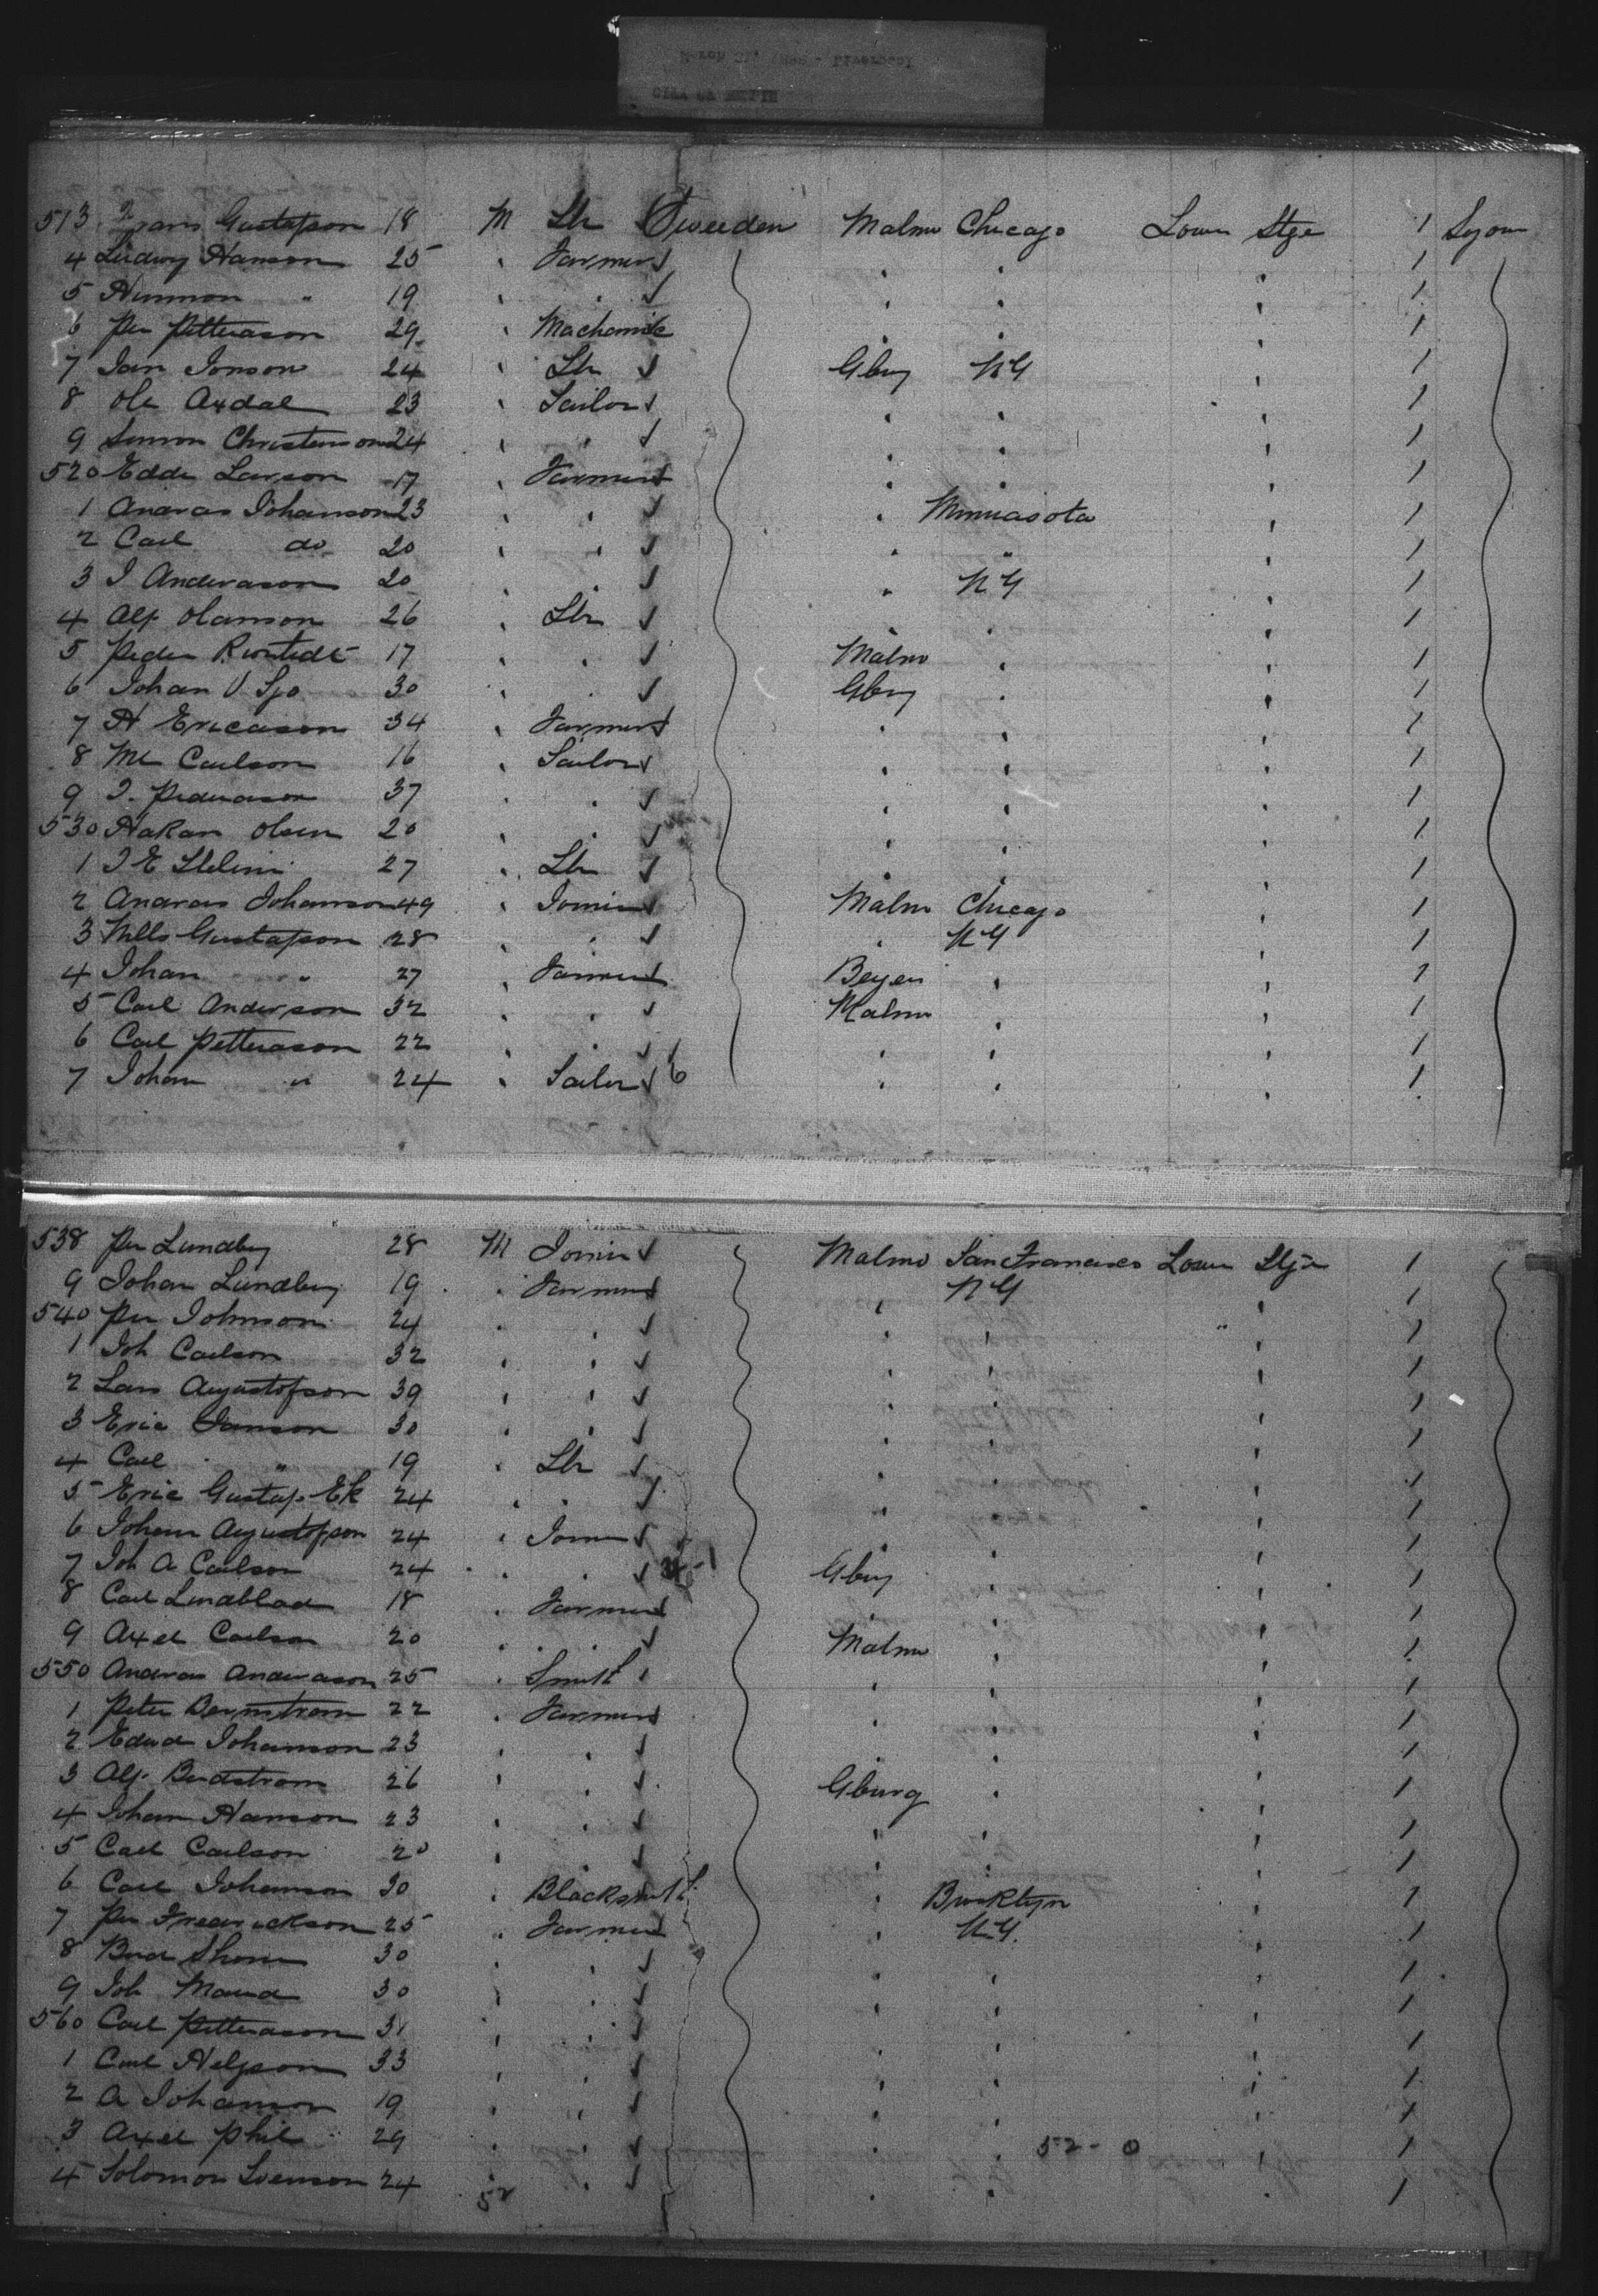 513 Frans Gustafson 18 M Lbr Sweeden Malmo Chicago Lower Stge 1 Sojour
4 Ludwig Hanson 25 " Farmer " " " 1
5 Hermon " 19 " " " " " 1
6 Per Petterason 29 " Mechanic " " " 1
7 Jan Jonson 24 " Lbr Gbug NY " 1
8 Ole Axdal 23 " Sailor " " " 1
9 Simon Christenson 24 " " " " " 1
520 Eddu Larson 17 " Farmer " " " 1
1 Andras Johanson 23 " " " Minnasota " 1
2 Carl do 20 " " " " " 1
3 J Anderason 20 " " " NY " 1
4 Alf Olanson 26 " Lbr " " " 1
5 Peder 17 " " Malmo " " 1
6 Johan V Sjo 30 " " Gbug " " 1
7 A Ericason 34 " Farmer " " " 1
8 Carlson 16 " Sailor " " " 1
9 J. Pederason 37 " " " " " 1
530 Hakan Olsen 20 " " " " " 1
1 J E 27 " Lbr " " " 1
2 Andras Johanson 49 " Joiner Malmo Chicago " 1
3 Nills Gustafson 28 " " " NY " 1
4 Johan " 27 " Farmer " " 1
5 Carl Anderson 32 " " Malmo " " 1
6 Carl Petterason 22 " " " " " 1
7 Johan " 24 " Sailor 6 " " " 1
538 Per Lundbug 28 M Joiner Malmo San Francisco Lower Stge 1
9 Johan Lundbug 19 " Farmer " NY " 1
540 Per Johnson 24 " " " " " 1
1 Joh Carlson 32 " " " " " 1
2 Lars Augustofson 39 " " " " " 1
3 Eric Janson 30 " " " " " 1
4 Carl " 19 " Lbr " " " 1
5 Eric Gustaf Ek 24 " " " " " 1
6 Johan Augustofson 24 " Joiner " " " 1
7 Joh A Carlson 24 " " Gbug " " 1
8 Carl Lindblad 18 " Farmer " " " 1
9 Axel Carlson 20 " " Malmo " " 1
550 Andras Anderason 25 " Smith " " " 1
1 Peter Bernstrom 22 " Farmer " " " 1
2 Edwd Johanson 23 " " " " " 1
3 Alf Bundstrom 26 " " Gburg " " 1
4 Johan Hanson 23 " " " " " 1
5 Carl Carlson 20 " " " " " 1
6 Carl Johanson 30 " Blacksmith " Brooklyn " 1
7 Per Fredrickson 25 " Farmer " N.Y. " 1
8 30 " " " " " 1
9 Joh 30 " " " " " 1
560 Carl Petterason 31 " " " " " 1
1 Carl Helgson 33 " " " " " 1
2 A Johanson 19 " " " " " 1
3 Axel Phil 29 " " " " 52-0 " 1
4 Solomon Svenson 24 " " " " " 1
52